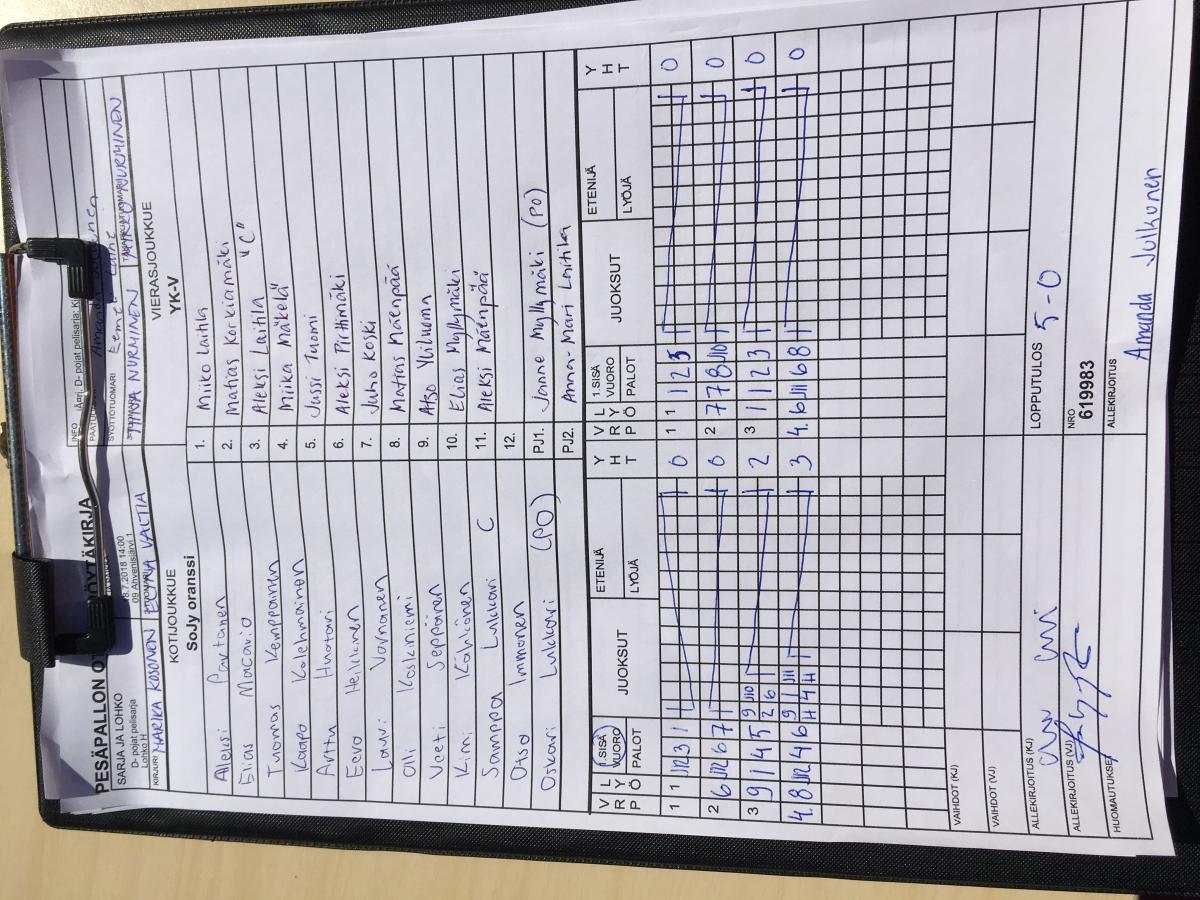 PESÄPALLON
SARJA JA LOHKO
D- pojat pelisarja
Lohko H
8.7.2018 14:00
09 Ahvenisjärvi 1
INFO
D- pojat pelisarja;
SYÖTTÖTUOMARI
KIRJURI MARIKA KOSONEN ELINA VALTIA TIINA NURMINEN MIKKO NURMINEN
KOTIJOUKKUE
SoJy oranssi
VIERASJOUKKUE
YK-V
Aleksi Partanen 1. Miiko Laitila
Elias Macario 2. Matias Korkiamäki
Tuomas Kemppainen 3. Aleksi Laitila "C"
Kaapo Kolehmainen 4. Miika Mäkelä
Arttu Huotari 5. Jussi Tuomi
Eevo Heikkinen 6. Aleksi Pirttimäki
Lauri Vornanen 7. Juho Koski
Olli Koskiniemi 8. Matias Mäenpää
Veeti Seppänen 9. Atso Yliluoma
Kimi Kähkönen 10. Elias Myllymäki
Samppa Lukkari C 11. Aleksi Mäenpää
Otso Immonen 12.
Oskari Lukkari (PO) PJ1. Janne Myllymäki (PO)
PJ2. Anna-Mari Laitila
V R P L Y Ö 1.SISÄ VUORO PALOT JUOKSUT ETENIJÄ LYÖJÄ Y H T V R P L Y Ö 1.SISÄ VUORO PALOT JUOKSUT ETENIJÄ LYÖJÄ Y H T
1 1 3 1 0 1 1 1 2 3 0
2 6 6 7 0 2 7 7 8 0
3 9 1 4 5 9 2 6 2 3 1 1 2 3 0
4. 8 4 6 9 1 4 3 4. 6 6 8 0
VAIHDOT (KJ)
VAIHDOT (VJ)
ALLEKIRJOITUS (KJ) LOPPUTULOS 5-0
ALLEKIRJOITUS (VJ) NRO
619983
HUOMAUTUKSET ALLEKIRJOITUS
Amanda Julkunen